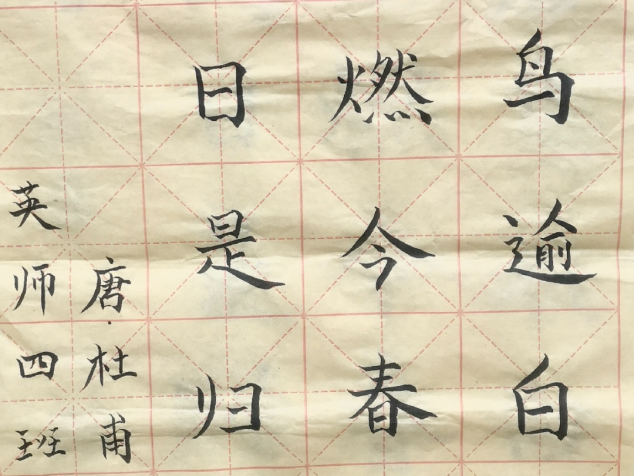 鸟逾白
燃今春
日是归
唐·杜甫
英师四班